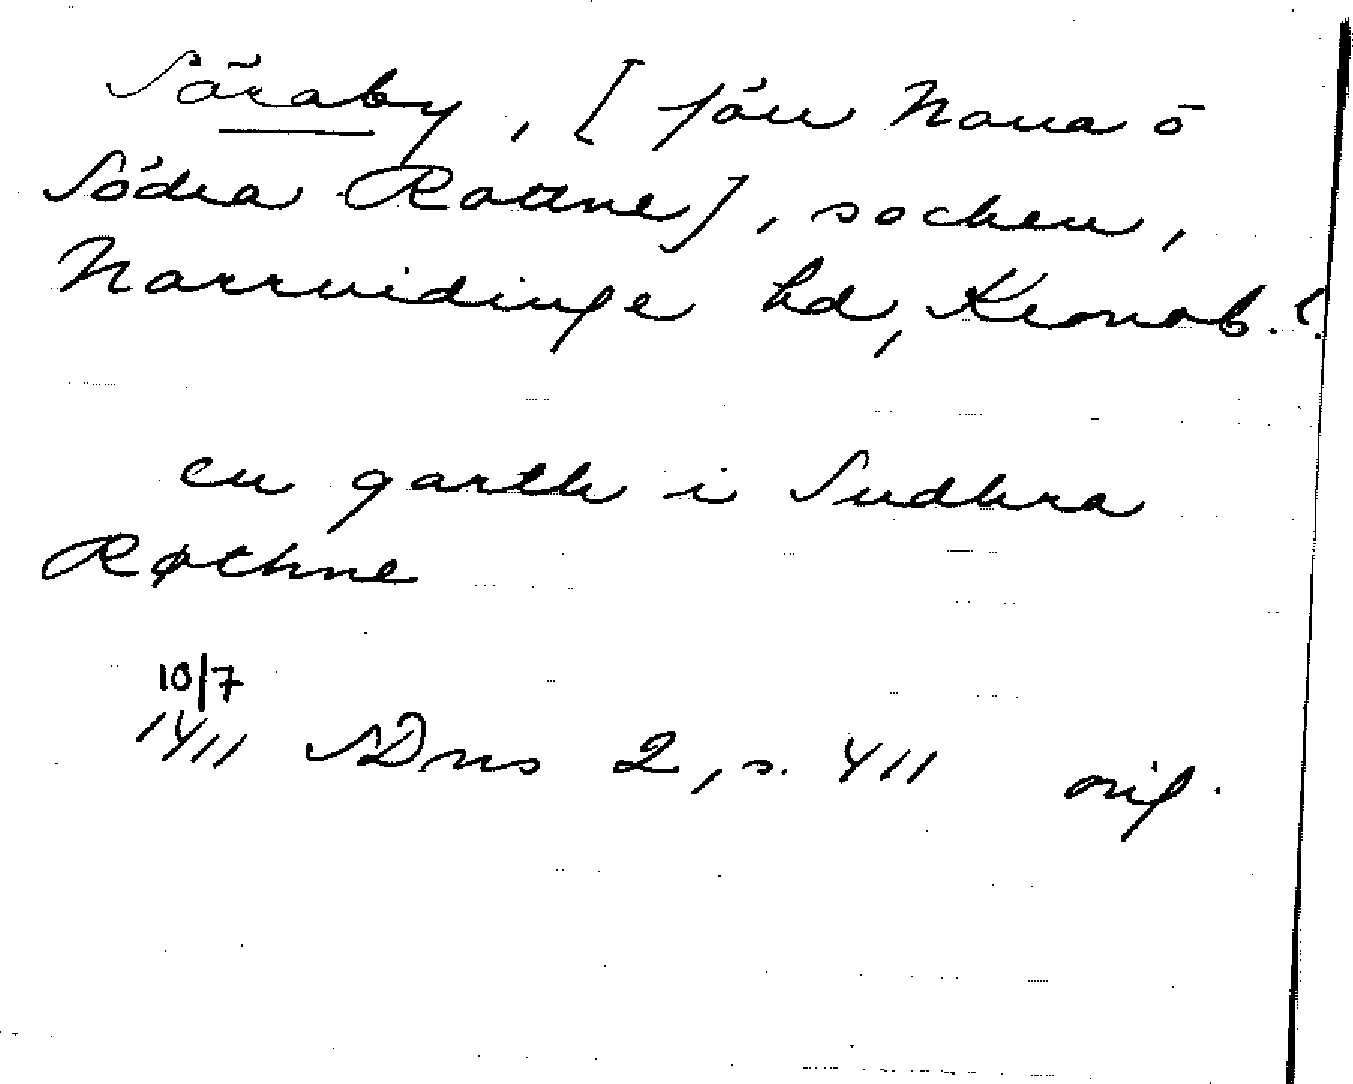 Söraby, [jfm Norra o
Södra Rottne], socken,
Norrvidinge hd, Kronob. l.
en garth i Sudhra
Røthne
10/7
1411 SDns 2, s. 411 orig.